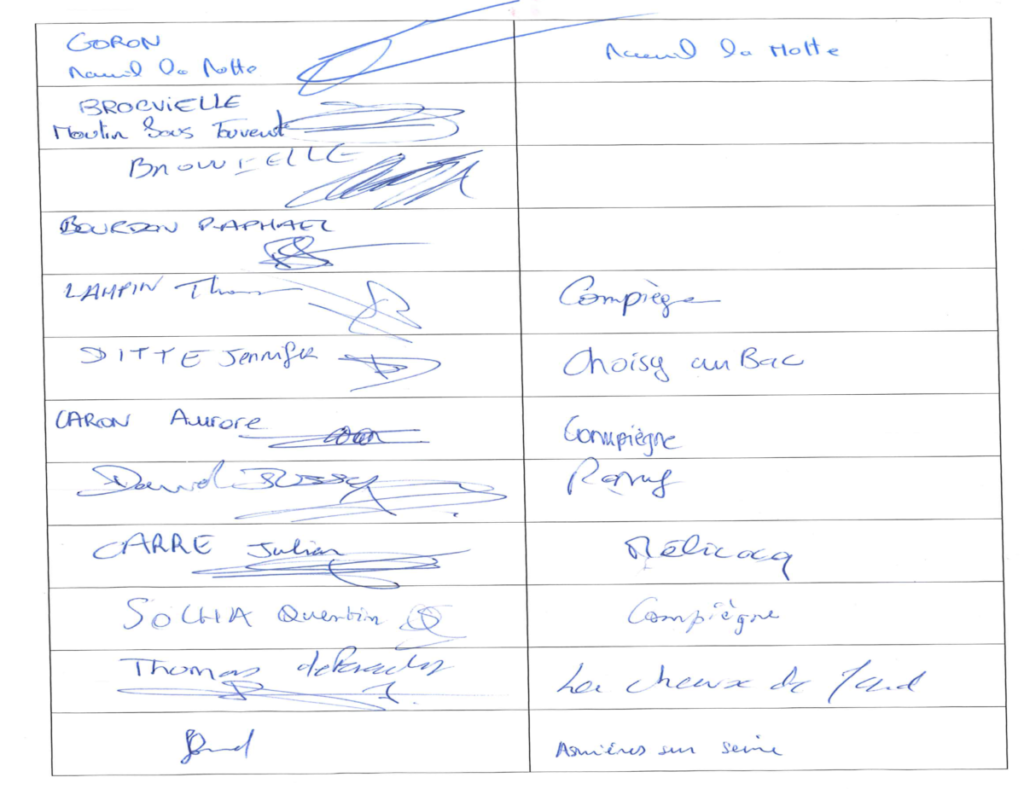 GORON
la Motte
la Motte
BROCVIELLE
Moulin Sous Touvent
BOURDON RAPHAEL
LAMPIN
Compiègne
DITTE Jennifer
Choisy au Bac
CARON Aurore
Compiègne
David Bussy
CARRE Julien
Mélicocq
SOCHA Quentin
Compiègne
Thomas
Asnières sur seine